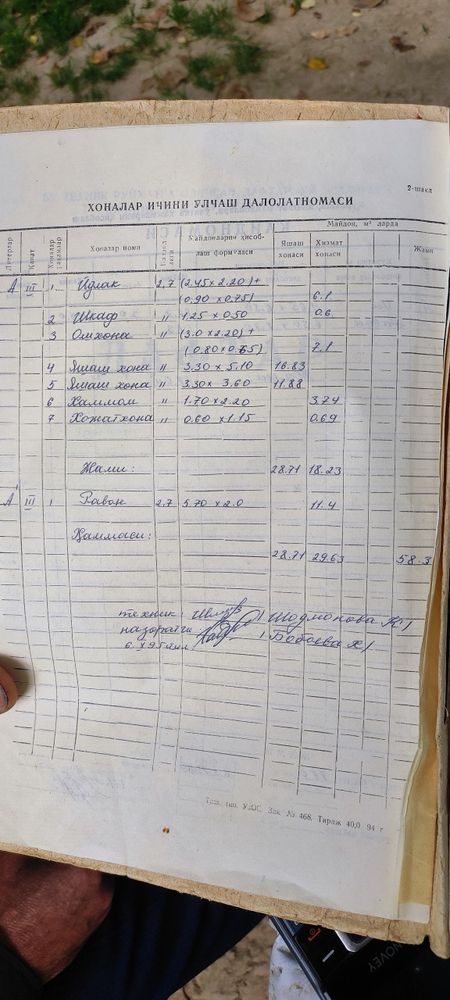 2-шакл
ХОНАЛАР ИЧИНИ УЛЧАШ ДАЛОЛАТНОМАСИ
Литерлар Қават Хоналар рақамлари Хоналар номи Майдонларни ҳисоб- лаш формуласи Майдон, м² ларда Яшаш хонаси Хизмат хонаси Жами
А III 1 Йўлак 2,7 (2.45 х 2.20) +
(0,90 х 0.75) 6.1
2 Шкаф " 1.25 х 0.50 0.6
3 Ошхона " (3.0 х 2.20) +
(0.80 х 0.65) 7.1
4 Яшаш хона " 3.30 х 5.10 16.83
5 Яшаш хона " 3.30 х 3.60 11.88
6 Хаммом " 1.70 х 2.20 3.74
7 Хожатхона " 0.60 х 1.15 0.69
Жами: 28.71 18.23
А III 1 Равон 2.7 5.70 х 2.0 11.4
Ҳаммаси:
28.71 29.63 58.3
техник / Шодмонова К /
назоратчи / Бобоева Х /
Зак. № 468. Тираж 40,0 94 г
NOVEY